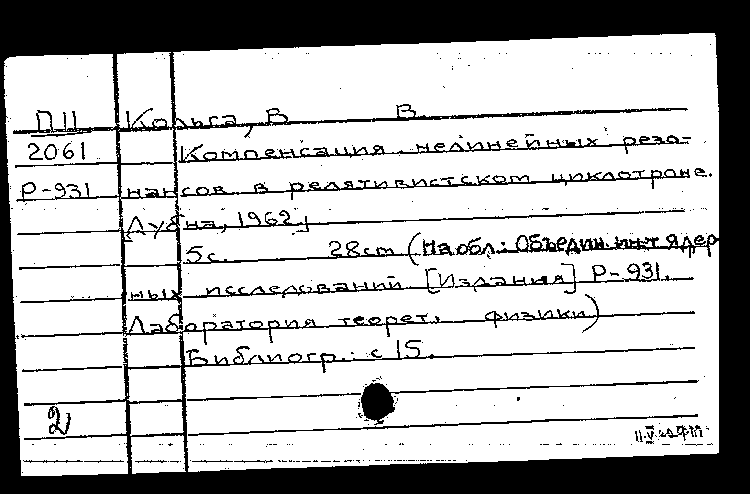 П11 Кольга, В В.
2061 Компенсация нелинейных резо-
Р-931 нансов в релятивистском циклотроне.
Дубна, 1962.
5с. 28cm (На обл.: Объедин. инт ядер
ных исследований [Издания] Р-931.
Лаборатория теорет. физики)
Библиогр.: с 15.
2